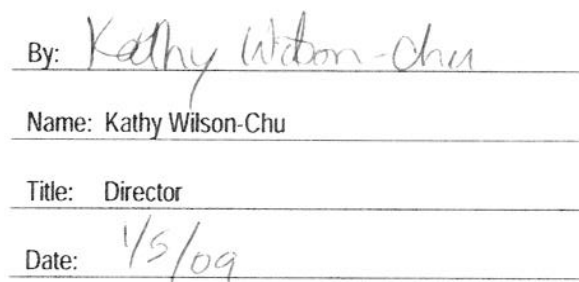 By: Kathy Wilson-Chu
Name: Kathy Wilson-Chu
Title: Director
Date: 1/5/09